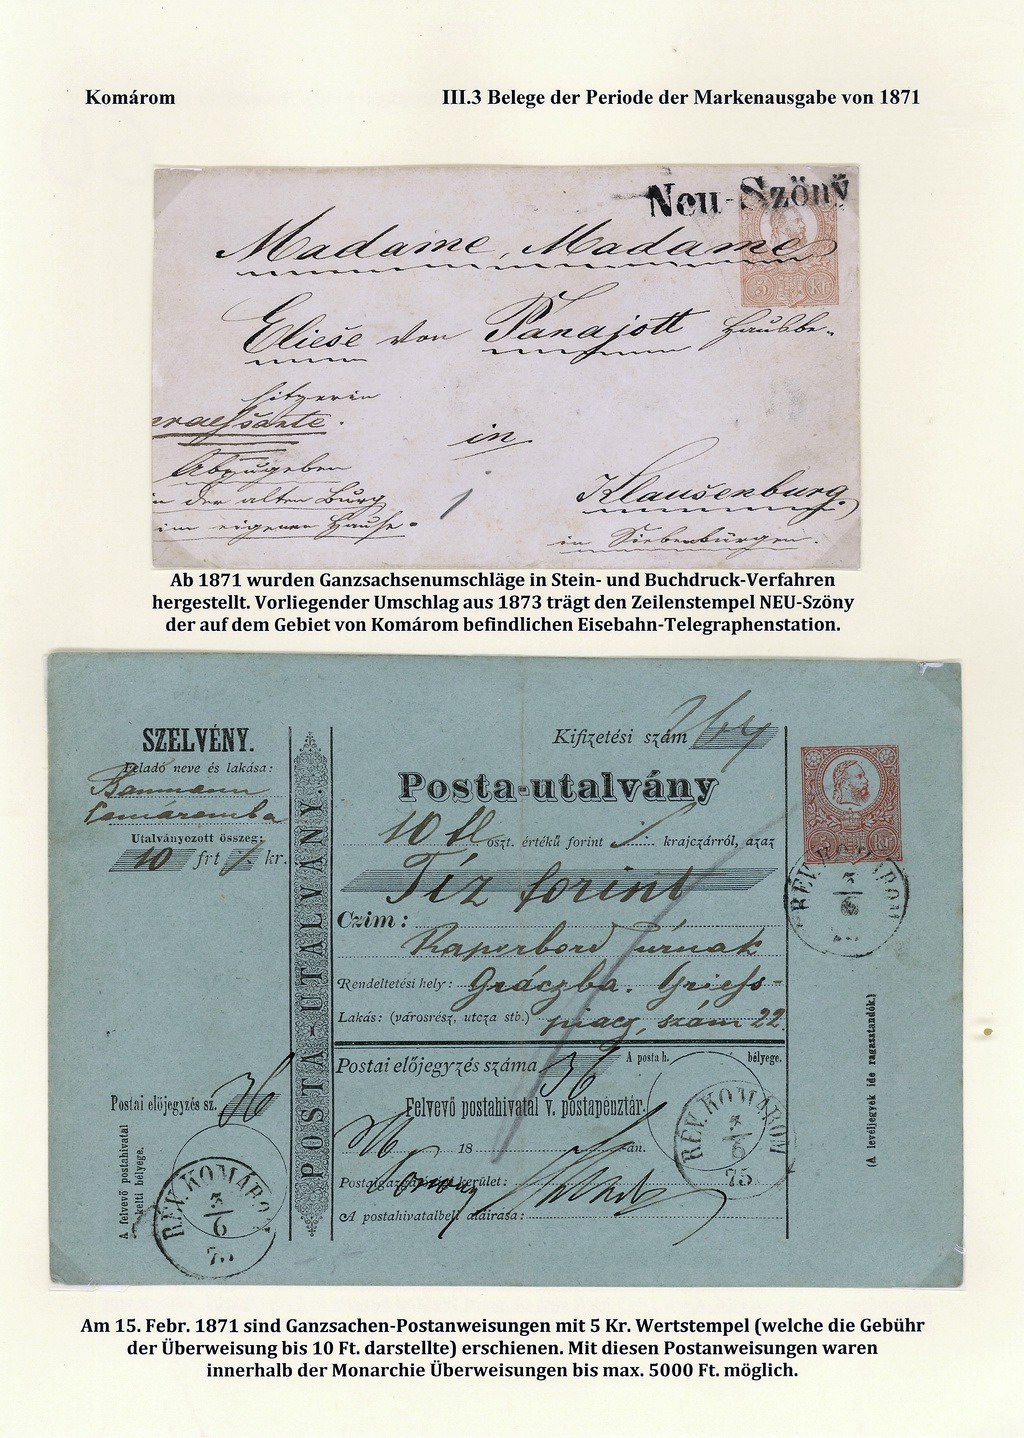 Komárom III.3 Belege der Periode der Markenausgabe von 1871
Neu-Szöny
Madame, Madame
5 Kr
Eliese von Panajott Hausbe-
sitzerin
in
Abzugeben
in der alten Burg
im eigenen Hause.
1
Klausenburg.
in Siebenbürgen.
Ab 1871 wurden Ganzsachsenumschläge in Stein- und Buchdruck-Verfahren
hergestellt. Vorliegender Umschlag aus 1873 trägt den Zeilenstempel NEU-Szöny
der auf dem Gebiet von Komárom befindlichen Eisebahn-Telegraphenstation.
SZELVÉNY.
Feladó neve és lakása:
Baumann
Comáromba
Utalványozott összeg:
10 frt kr.
Postai előjegyzés sz. 36
A felvevő postahivatal
kelti bélyege.
RÉV.KOMÁROM
3/6
75
POSTA-UTALVÁNY.
Kifizetési szám 764
Posta-utalvány
10 fl oszt. értékű forint krajczárról, azaz
Tíz forint
Czim:
úrnak
Rendeltetési hely: Gráczba. Griess-
Lakás: (városrész, utcza stb.) piacz, szám 22.
Postai előjegyzés száma 36
A posta h. bélyege.
Felvevő postahivatal v. postapénztár.
18 -án.
Postaigazgatósági kerület:
A postahivatalbeli aláirása:
RÉV.KOMÁROM
3/6
75.
5 Kr
RÉV.KOMÁROM
3/6
(A levéljegyek ide ragasztandók.)
Am 15. Febr. 1871 sind Ganzsachen-Postanweisungen mit 5 Kr. Wertstempel (welche die Gebühr
der Überweisung bis 10 Ft. darstellte) erschienen. Mit diesen Postanweisungen waren
innerhalb der Monarchie Überweisungen bis max. 5000 Ft. möglich.